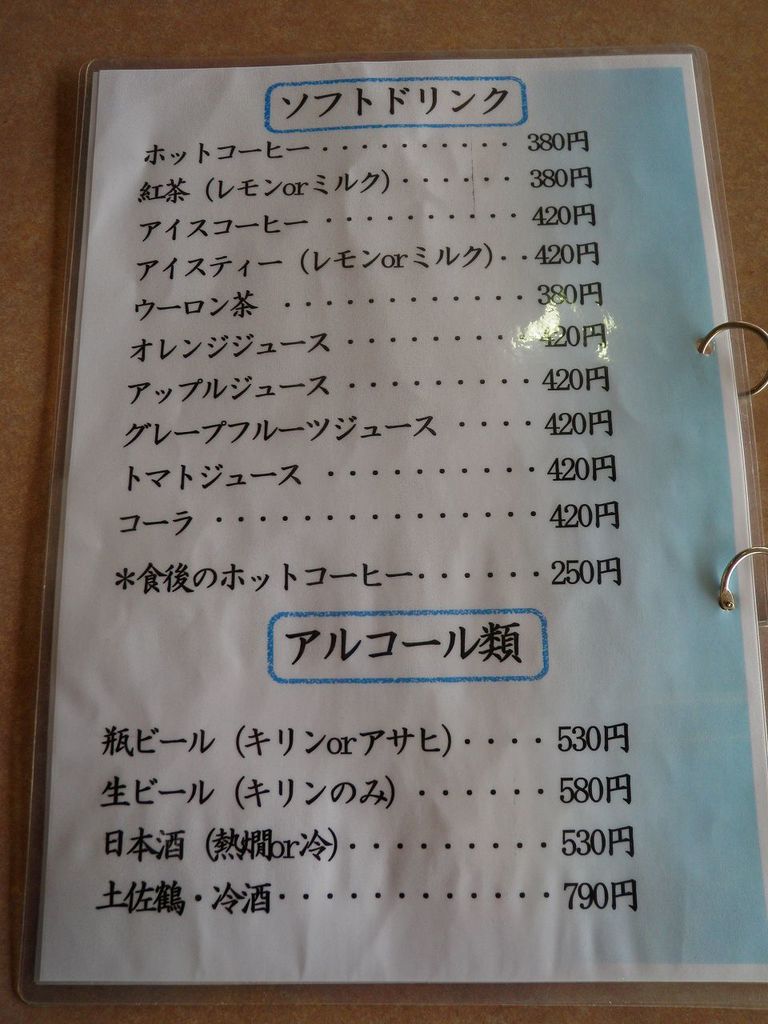 ソフトドリンク
ホットコーヒー・・・・・・・・・・380円
紅茶（レモンorミルク）・・・・・・380円
アイスコーヒー・・・・・・・・・・420円
アイスティー（レモンorミルク）・・420円
ウーロン茶・・・・・・・・・・・・・380円
オレンジジュース・・・・・・・・・・420円
アップルジュース・・・・・・・・・・420円
グレープフルーツジュース・・・・420円
トマトジュース・・・・・・・・・・420円
コーラ・・・・・・・・・・・・・・・420円
＊食後のホットコーヒー・・・・・・250円
アルコール類
瓶ビール（キリンorアサヒ）・・・・530円
生ビール（キリンのみ）・・・・・・580円
日本酒（熱燗or冷）・・・・・・・・・530円
土佐鶴・冷酒・・・・・・・・・・・・790円